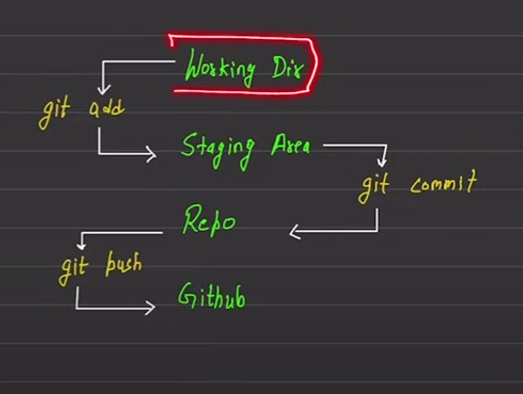 Working Dir
git add
Staging Area
git commit
Repo
git push
Github